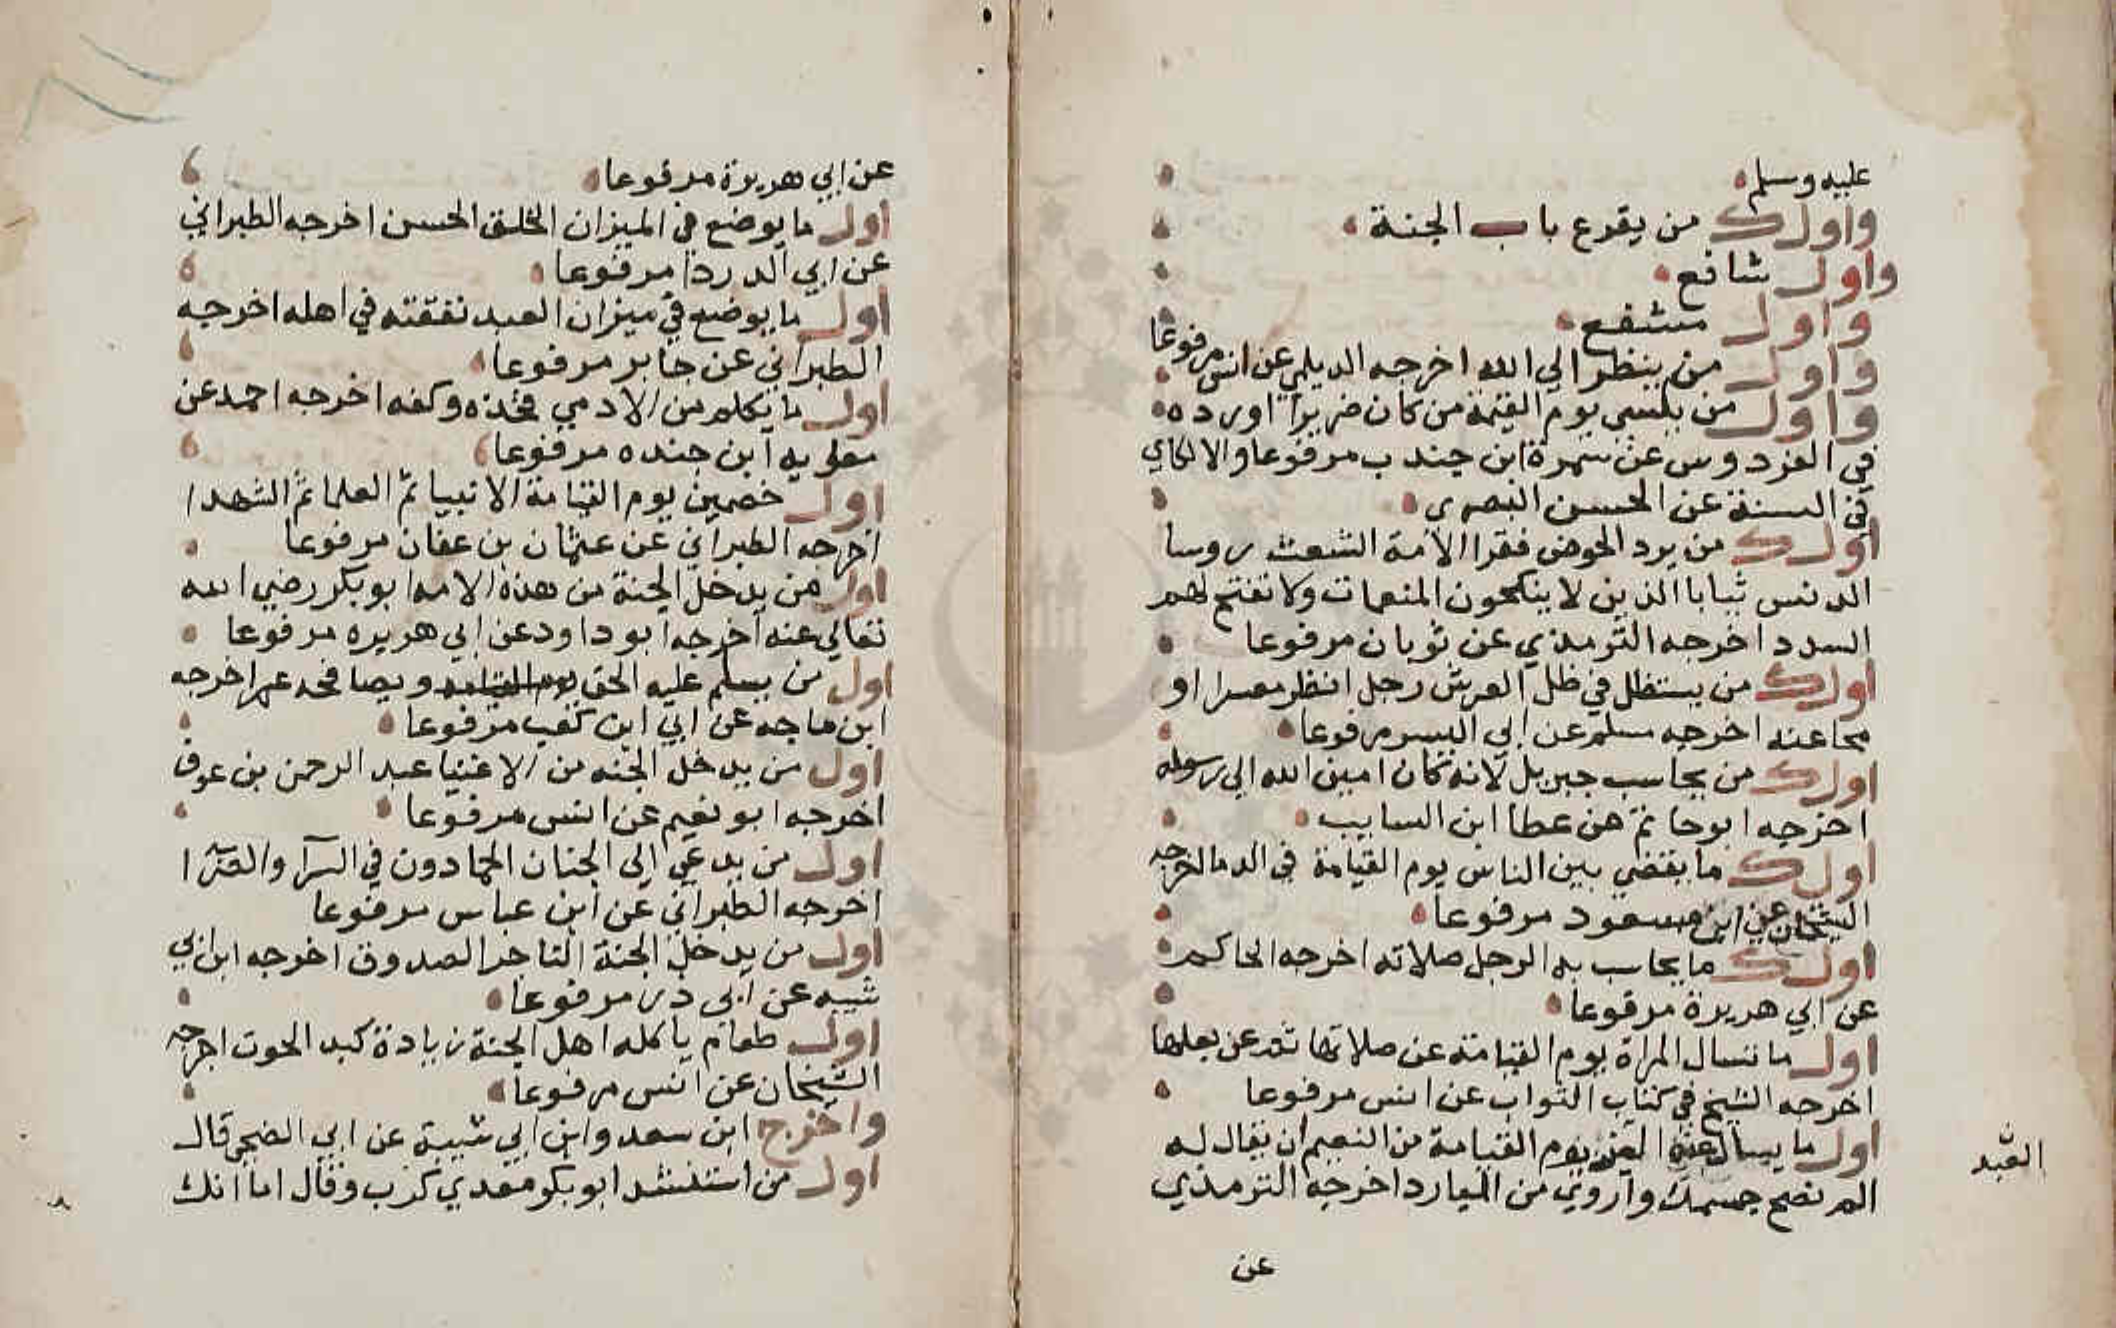 عليه وسلم
واول من يقرع باب الجنة
واول شافع
واول مشفع
واول من ينظر الي الله اخرجه الديلمي عن انس مرفوعا
واول من يكسي يوم القيمة من كان ضريرا اورده
في الفردوس عن سمرة ابن جندب مرفوعا والالكاي
في السنة عن الحسن البصري
اول من يرد الحوض فقرا الامة الشعث روسا
الدنس ثيابا الذين لا ينكحون المنعمات ولا تفتح لهم
السدد اخرجه الترمذي عن ثوبان مرفوعا
اول من يستظل في ظل العرش رجل انظر معسرا او
محا عنه اخرجه مسلم عن ابي اليسر مرفوعا
اول من يحاسب جبريل لانه كان امين الله الي رسوله
اخرجه ابو حاتم عن عطا ابن السايب
اول ما يقضي بين الناس يوم القيامة في الدما اخرجه
الشيخان عن ابن مسعود مرفوعا
اول ما يحاسب به الرجل صلاته اخرجه الحاكم
عن ابي هريرة مرفوعا
اول ما تسال المراة يوم القيامة عن صلاتها ثم عن بعلها
اخرجه الشيخ في كتاب الثواب عن انس مرفوعا
اول ما يسال عنه يوم القيامة من النعيم ان يقال له
الم نصح جسمك واروي من البارد اخرجه الترمذي
العبد
عن
عن ابي هريرة مرفوعا
اول ما يوضع في الميزان الخلق الحسن اخرجه الطبراني
عن ابي الدردا مرفوعا
اول ما يوضع في ميزان العبد نفقته في اهله اخرجه
الطبراني عن جابر مرفوعا
اول ما يتكلم من الادمي فخذه وكفه اخرجه احمد عن
معويه ابن جنده مرفوعا
اول خصمين يوم القيامة الانبيا ثم العلما ثم الشهدا
اخرجه الطبراني عن عثمان بن عفان مرفوعا
اول من يدخل الجنة من هذه الامه ابو بكر رضي الله
تعالي عنه اخرجه ابو داود عن ابي هريره مرفوعا
اول من يسلم عليه الحق ويصافحه عمر اخرجه
ابن ماجه عن ابي ابن كعب مرفوعا
اول من يدخل الجنه من الاغنيا عبد الرحمن بن عوف
اخرجه ابو نعيم عن انس مرفوعا
اول من يدعي الى الجنان الحمادون في السرآ والضرا
اخرجه الطبراني عن ابن عباس مرفوعا
اول من يدخل الجنة التاجر الصدوق اخرجه ابن ابي
شيبه عن ابى ذر مرفوعا
اول طعام ياكله اهل الجنة زيادة كبد الحوت اخرجه
الشيخان عن انس مرفوعا
واخرج ابن سعد وابن ابي شيبة عن ابي الضحي قال
اول من استنشد ابو بكر معدي كرب وقال اما انك